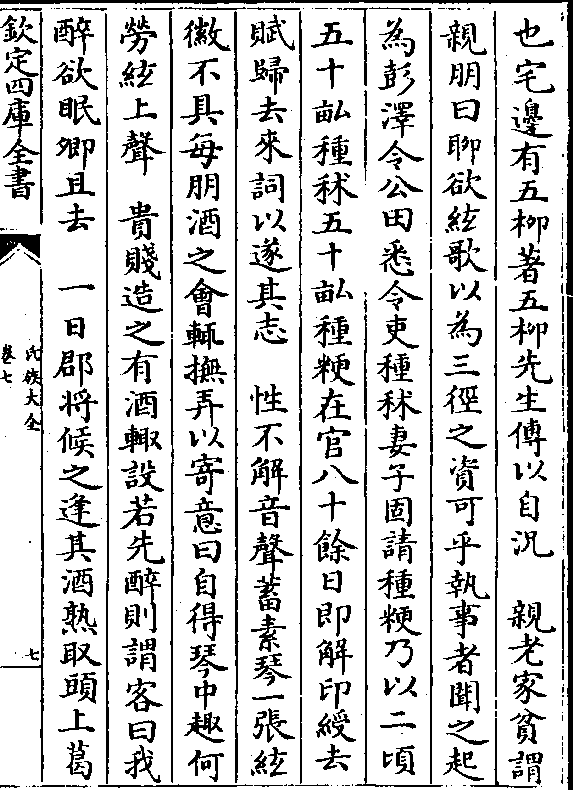 也宅邊有五柳著五柳先生傳以自況　親老家貧謂
親朋曰聊欲絃歌以為三徑之資可乎執事者聞之起
為彭澤令公田悉令吏種秫妻子固請種粳乃以二頃
五十畝種秫五十畝種粳在官八十餘日即解印綬去
賦歸去來詞以遂其志　性不解音聲蓄素琴一張絃
徽不具每朋酒之會輒撫弄以寄意曰自得琴中趣何
勞絃上聲　貴賤造之有酒輙設若先醉則謂客曰我
醉欲眠卿且去　一日郡将候之逢其酒熟取頭上葛
欽定四庫全書
氏族大全
卷七
七